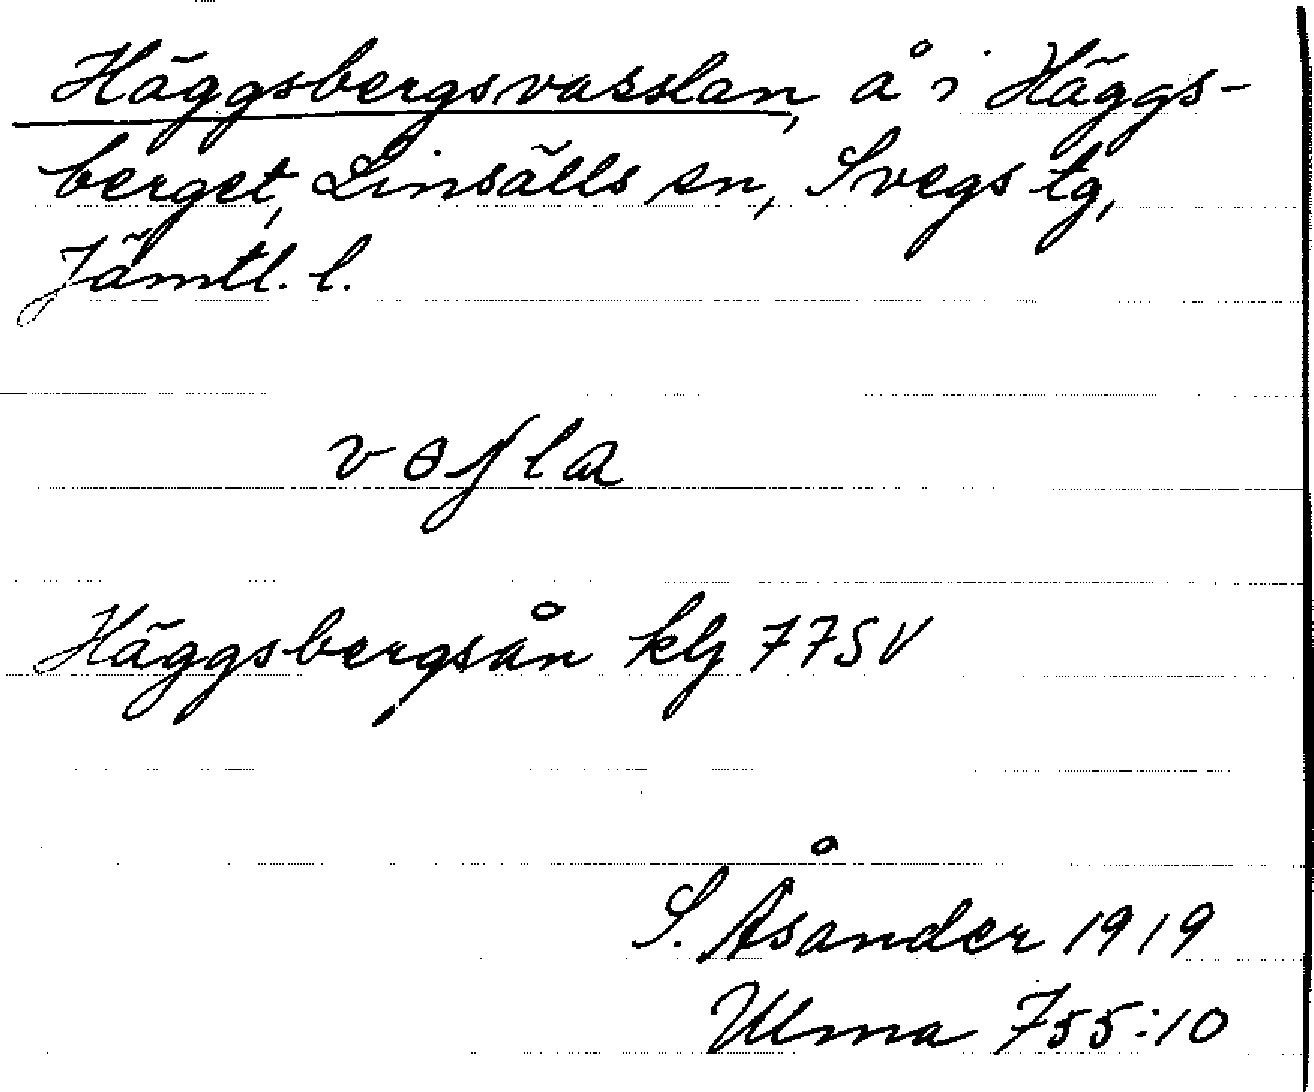 Häggsbergsvasslan, å i Häggs-
berget, Linsälls sn, Svegs tg,
Jämtl. l.
vɵʃla
Häggsbergsån kbg 77SV
S. Åsander 1919
Ulma 755:10